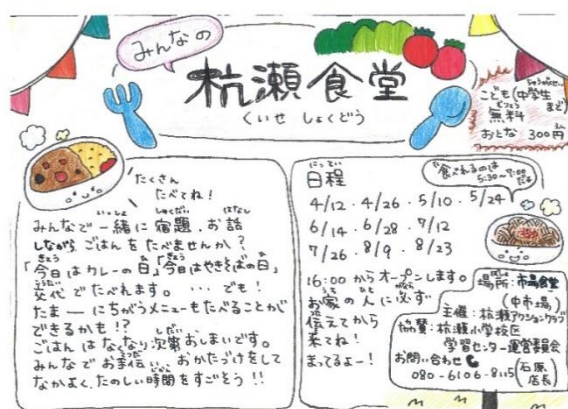 みんなの
杭瀬食堂
くいせ しょくどう
こども(中学生まで)
無料
おとな 300円
たくさん
たべてね!
みんなで一緒に宿題、お話
しながらごはんをたべませんか?
「今日はカレーの日」「今日はやきそばの日」
交代でたべれます。…でも!
たまーにちがうメニューもたべることが
できるかも!?
ごはんはなくなり次第おしまいです。
みんなでお手伝い、おかたづけをして
なかよく、たのしい時間をすごそう!!
日程
食べれるのは
5:30~7:00
だよ
4/12・4/26・5/10・5/24
6/14・6/28・7/12
7/26・8/9・8/23
16:00からオープンします。
お家の人に必ず
伝えてから
来てね!
まってるよー!
場所:市場食堂
(中市場)
主催:杭瀬アクションクラブ
協賛:杭瀬小学校区
学習センター運営委員会
お問い合わせ
080-6106-8115(石原店長)